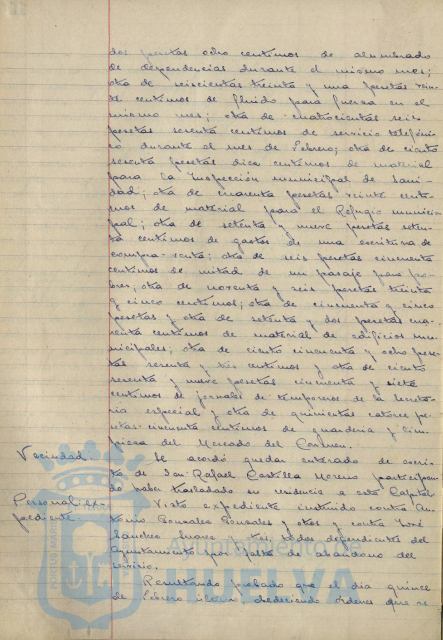 dos pesetas ocho centimos de alumbrado
de dependencias durante el mismo mes;
otra de seiscientas treinta y una pesetas vein-
te centimos de fluido para fuerza en el
mismo mes; otra de cuatrocientas seis
pesetas sesenta centimos de servicio telefóni-
co durante el mes de Febrero; otra de ciento
sesenta pesetas diez centimos de material
para la Inspección municipal de Sani-
dad; otra de cuarenta pesetas veinte centi-
mos de material para el Refugio munici-
pal; otra de setenta y nueve pesetas seten-
ta centimos de gastos de una escritura de
compra-venta; otra de seis pesetas cincuenta
centimos de mitad de un pasaje para po-
bres; otra de noventa y seis pesetas treinta
y cinco centimos; otra de cincuenta y cinco
pesetas y otra de setenta y dos pesetas cua-
renta centimos de material de edificios mu-
nicipales; otra de ciento cincuenta y ocho pese-
tas sesenta y tres centimos y otra de ciento
sesenta y nueve pesetas cincuenta y siete
centimos de jornales de temporeros de la Secreta-
ria especial y otra de quinientas catorce pe-
setas cincuenta centimos de guarderia y lim-
pieza del Mercado del Carmen.
Vecindad. Se acordó quedar enterado de escri-
to de Don Rafael Castilla Moreno participan-
do haber trasladado su residencia a esta Capital
Personal. Ex-
pediente. Visto expediente instruido contra An-
tonio Gonzalez Gonzales y otros y contra José
Sanchez todos dependientes del
Ayuntamiento por falta de abandono del
servicio.
Resultando probado que el dia quince
de Febrero ultimo, obedeciendo órdenes que se
Ayuntamiento de
HUELVA